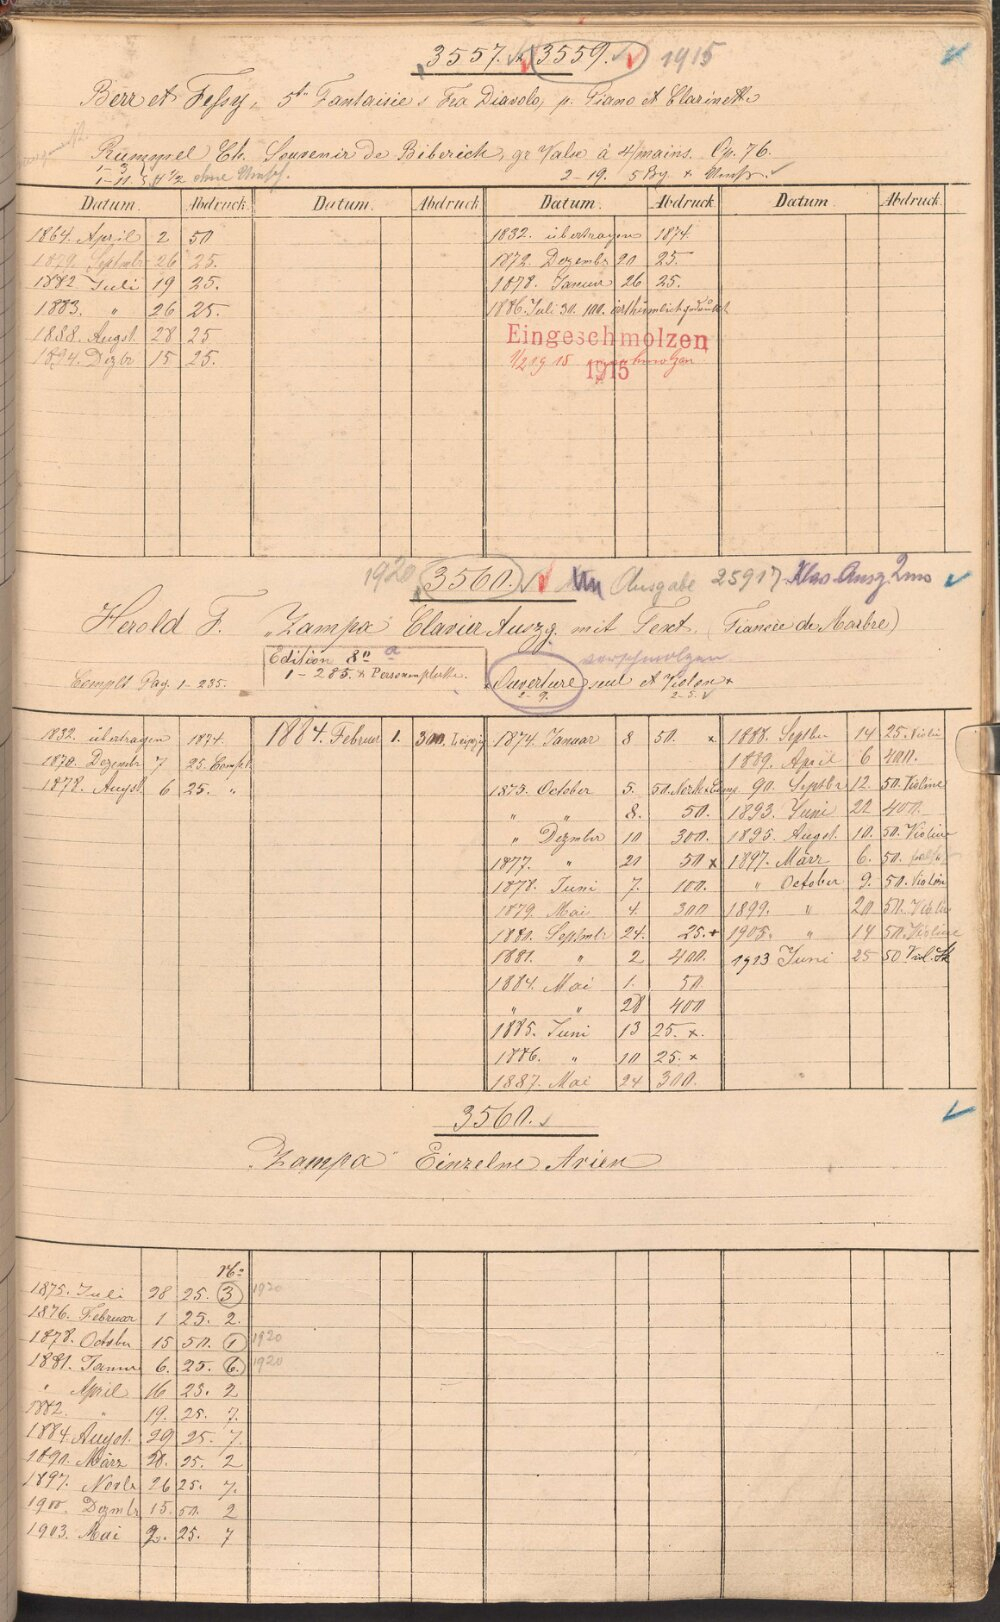 3557. 3559. 1915
Berr et Fessy, 5te Fantaisie s Fra Diavolo, p. Piano et Clarinette
Rummel Ch. Souvenir de Biberich, gr Valse à 4/mains. Op. 76.
1-11 ohne Umsch. 2-19. 5 Bg + Umsch.
Datum. Abdruck Datum. Abdruck Datum. Abdruck Datum Abdruck
1864. April 2 50 1832. übertragen 1874.
1879. Septmbr 26 25. 1872. Dezembr 20 25.
1882 Juli 19 25. 1878. Januar 26 25.
1883. " 26 25. 1886. Juli 30. 100. irrthümlich gedruckt
1888. Augst. 28 25 Eingeschmolzen
1894. Dezbr 15 25. 1915
1920 3560. Ausgabe 25917 Klav. Ausz 2ms
Herold F. "Zampa" Clavier Auszg. mit Text. (Fiancée de Marbre)
Edition 8o a verschmolzen
1-285. + Personenplatte.
Complt Pag. 1-235. Ouverture seul et Violon +
2-9. 2-5.
1832. übertragen 1874. 1884. Februar 1. 300. Leipzig 1874. Januar 8 50. x 1888. Septbr 14 25. Violi
1870. Dezembr 7 25. Compl. 1889. April 6 400.
1878. Augst 6 25. " 1875. October 5. 50. 90. Septbr 12. 50. Violine
" " 8. 50. 1893. Juni 22 400.
" Dezmber 10 300. 1895. Augst. 10. 50. Violine
1877. " 20 50 x 1897. März 6. 50.
1878. Juni 7. 100. " October 9. 50. Violin
1879. Mai 4. 300 1899. " 20 50. Violin
1880. Septmbr 24. 25. + 1905. " 14 50. Violine
1881. " 2 400. 1913 Juni 25 50 Viol. St
1884. Mai 1. 50
" " 28 400
1885. Juni 13 25. x.
1886. " 10 25. x
1887. Mai 24 300.
3560.
"Zampa" Einzelne Arien
No
1875. Juli 28 25. 3 1920
1876. Februar 1 25. 2.
1878. October 15 50. 1 1920
1881. Januar 6. 25. 6. 1920
" April 16 25. 2
1882. " 19. 25. 7.
1884. Augst. 29 25. 7.
1890. März 28. 25. 2
1897. Novbr 26 25. 7.
1900. Dezmbr 15. 50. 2
1903. Mai 2. 25. 7